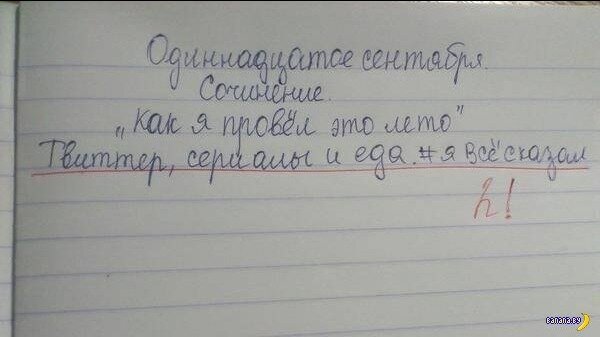 Одиннадцатое сентября.
Сочинение.
„Как я провёл это лето"
Твиттер, сериалы и еда. #явсёсказал
2!
BANANA.BY